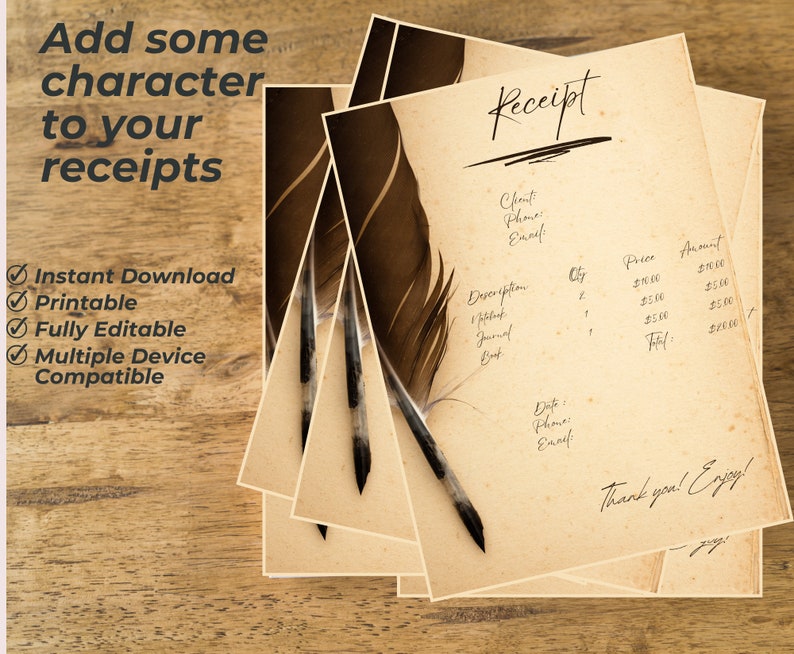 Add some
character
to your
receipts
Instant Download
Printable
Fully Editable
Multiple Device
Compatible
Receipt
Client:
Phone:
Email:
Description Qty Price Amount
Notebook 2 $10.00 $10.00
Journal 1 $5.00 $5.00
Book 1 $5.00 $5.00
Total: $20.00
Date:
Phone:
Email:
Thank you! Enjoy!
Enjoy!